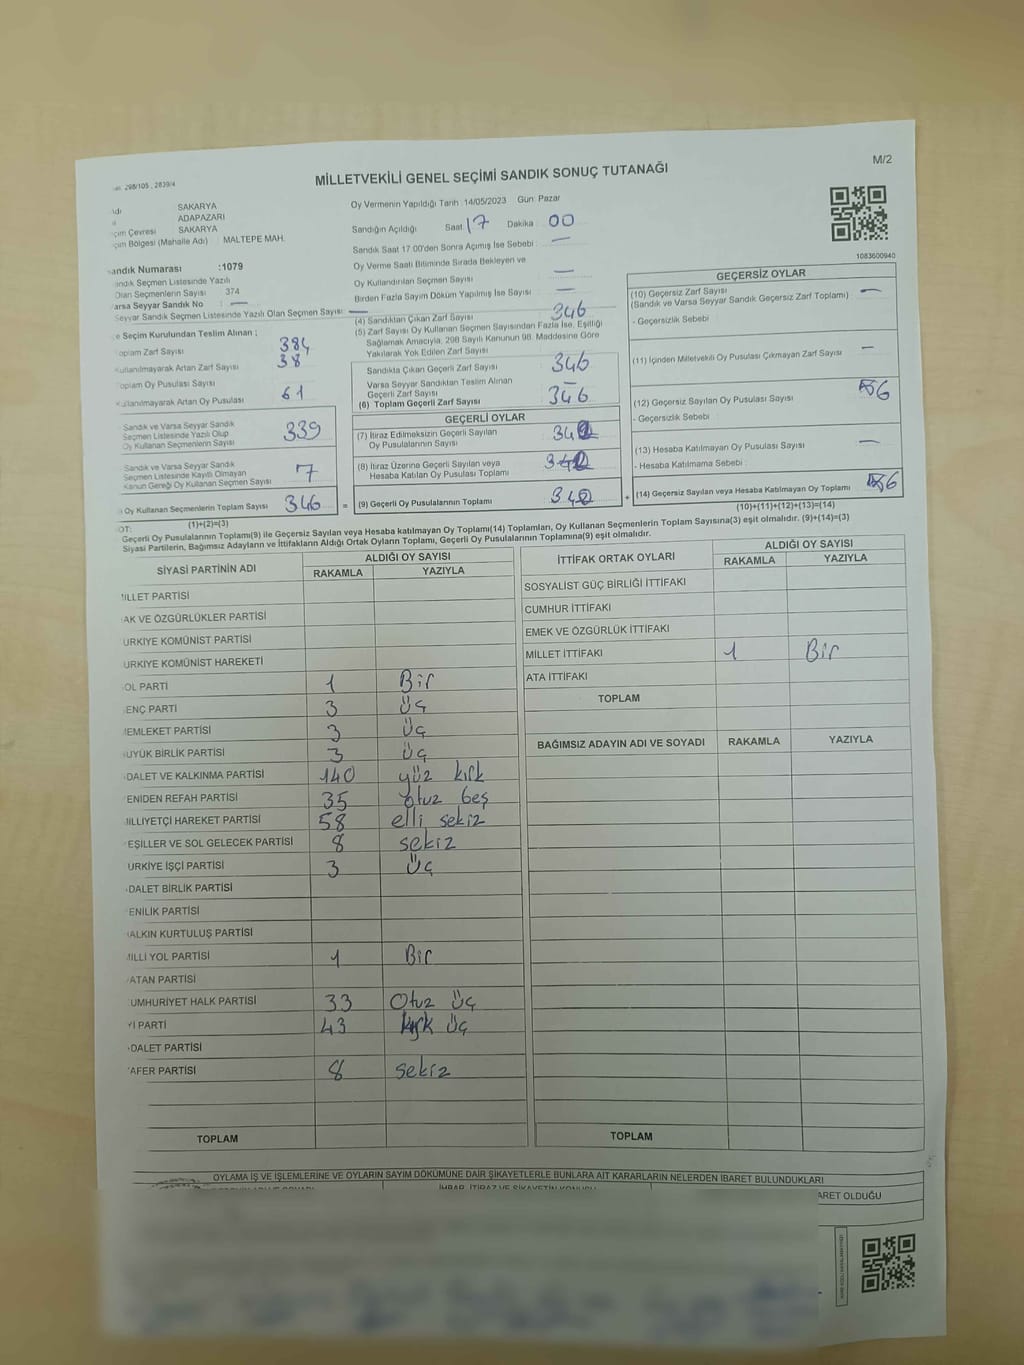 298/105 , 2839/4
M/2
MİLLETVEKİLİ GENEL SEÇİMİ SANDIK SONUÇ TUTANAĞI
SAKARYA
ADAPAZARI
SAKARYA
(Mahalle Adı) MALTEPE MAH.
Oy Vermenin Yapıldığı Tarih :14/05/2023 Gün: Pazar
Sandığın Açıldığı Saat 17 Dakika 00
Sandık Saat 17:00'den Sonra Açımış İse Sebebi : —
Oy Verme Saati Bitiminde Sırada Bekleyen ve
Oy Kullandırılan Seçmen Sayısı —
Birden Fazla Sayım Döküm Yapılmış İse Sayısı —
1083600940
andık Numarası :1079
andık Seçmen Listesinde Yazılı
Olan Seçmenlerin Sayısı 374
arsa Seyyar Sandık No : —
Seyyar Sandık Seçmen Listesinde Yazılı Olan Seçmen Sayısı: —
e Seçim Kurulundan Teslim Alınan ;
oplam Zarf Sayısı 384
ullanılmayarak Artan Zarf Sayısı 38
oplam Oy Pusulası Sayısı
ullanılmayarak Artan Oy Pusulası 61
Sandık ve Varsa Seyyar Sandık
Seçmen Listesinde Yazılı Olup
Oy Kullanan Seçmenlerin Sayısı 339
Sandık ve Varsa Seyyar Sandık
Seçmen Listesinde Kayıtlı Olmayan
Kanun Gereği Oy Kullanan Seçmen Sayısı 7
Oy Kullanan Seçmenlerin Toplam Sayısı 346
(1)+(2)=(3)
(4) Sandıktan Çıkan Zarf Sayısı 346
(5) Zarf Sayısı Oy Kullanan Seçmen Sayısından Fazla İse, Eşitliği
Sağlamak Amacıyla, 298 Sayılı Kanunun 98. Maddesine Göre
Yakılarak Yok Edilen Zarf Sayısı
Sandıkta Çıkan Geçerli Zarf Sayısı 346
Varsa Seyyar Sandıktan Teslim Alınan
Geçerli Zarf Sayısı —
(6) Toplam Geçerli Zarf Sayısı 346
GEÇERLİ OYLAR
(7) İtiraz Edilmeksizin Geçerli Sayılan
Oy Pusulalarının Sayısı
(8) İtiraz Üzerine Geçerli Sayılan veya
Hesaba Katılan Oy Pusulası Toplamı
= (9) Geçerli Oy Pusulalarının Toplamı
GEÇERSİZ OYLAR
(10) Geçersiz Zarf Sayısı —
(Sandık ve Varsa Seyyar Sandık Geçersiz Zarf Toplamı)
- Geçersizlik Sebebi :
(11) İçinden Milletvekili Oy Pusulası Çıkmayan Zarf Sayısı —
(12) Geçersiz Sayılan Oy Pusulası Sayısı 6
- Geçersizlik Sebebi :
(13) Hesaba Katılmayan Oy Pusulası Sayısı —
- Hesaba Katılmama Sebebi :
+ (14) Geçersiz Sayılan veya Hesaba Katılmayan Oy Toplamı 6
(10)+(11)+(12)+(13)=(14)
OT:
Geçerli Oy Pusulalarının Toplamı(9) ile Geçersiz Sayılan veya Hesaba katılmayan Oy Toplamı(14) Toplamları, Oy Kullanan Seçmenlerin Toplam Sayısına(3) eşit olmalıdır. (9)+(14)=(3)
Siyasi Partilerin, Bağımsız Adayların ve İttifakların Aldığı Ortak Oyların Toplamı, Geçerli Oy Pusulalarının Toplamına(9) eşit olmalıdır.
SİYASİ PARTİNİN ADI ALDIĞI OY SAYISI
RAKAMLA YAZIYLA
İLLET PARTİSİ
AK VE ÖZGÜRLÜKLER PARTİSİ
URKİYE KOMÜNİST PARTİSİ
URKİYE KOMÜNİST HAREKETİ
OL PARTİ 1 Bir
ENÇ PARTİ 3 Üç
EMLEKET PARTİSİ 3 Üç
UYUK BİRLİK PARTİSİ 3 üç
DALET VE KALKINMA PARTİSİ 140 yüz kırk
ENİDEN REFAH PARTİSİ 35 otuz beş
İLLİYETÇİ HAREKET PARTİSİ 58 elli sekiz
EŞİLLER VE SOL GELECEK PARTİSİ 8 sekiz
URKİYE İŞÇİ PARTİSİ 3 üç
DALET BİRLİK PARTİSİ
ENİLİK PARTİSİ
ALKIN KURTULUŞ PARTİSİ
İLLİ YOL PARTİSİ 1 Bir
ATAN PARTİSİ
UMHURİYET HALK PARTİSİ 33 Otuz üç
Yİ PARTİ 43 kırk üç
DALET PARTİSİ
AFER PARTİSİ 8 sekiz
TOPLAM
İTTİFAK ORTAK OYLARI ALDIĞI OY SAYISI
RAKAMLA YAZIYLA
SOSYALİST GÜÇ BİRLİĞİ İTTİFAKI
CUMHUR İTTİFAKI
EMEK VE ÖZGÜRLÜK İTTİFAKI
MİLLET İTTİFAKI 1 Bir
ATA İTTİFAKI
TOPLAM
BAĞIMSIZ ADAYIN ADI VE SOYADI RAKAMLA YAZIYLA
TOPLAM
OYLAMA İŞ VE İŞLEMLERİNE VE OYLARIN SAYIM DÖKÜMÜNE DAİR ŞİKAYETLERLE BUNLARA AİT KARARLARIN NELERDEN İBARET BULUNDUKLARI
İHBAR, İTİRAZ VE ŞİKAYETİN KONUSU
BARET OLDUĞU